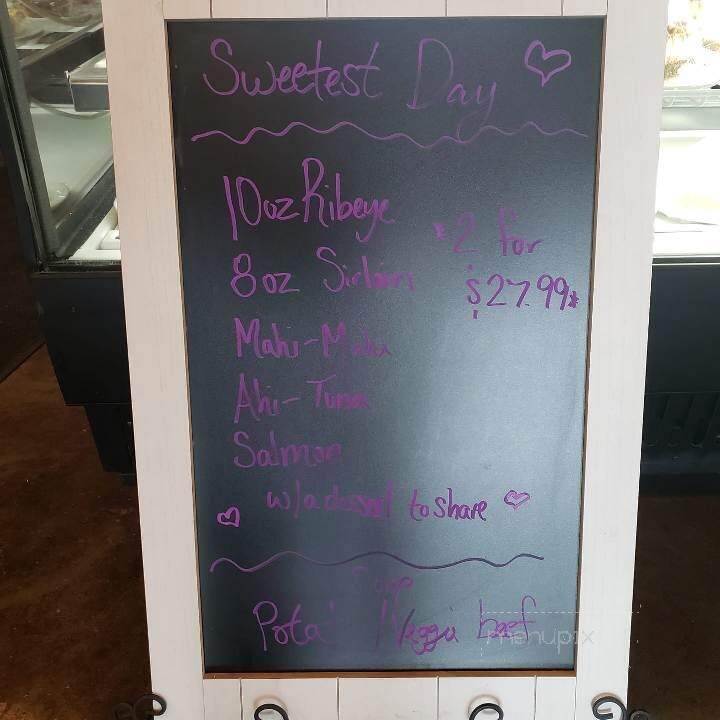 Sweetest Day
10oz Ribeye
8oz Sirloin
*2 for
$27.99*
Mahi-Mahi
Ahi-Tuna
Salmon
w/a dessert to share
Soup
Veggie beef
menupix